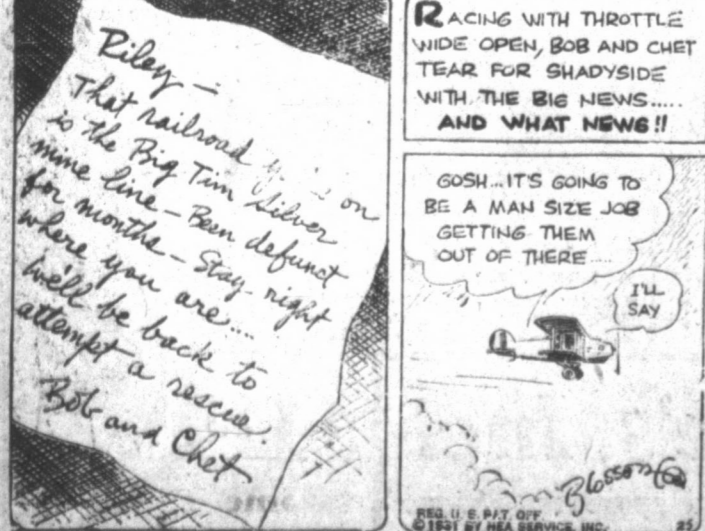 Riley —
That railroad on
is the Big Tim Silver
mine line — Been defunct
for months — Stay right
where you are....
We'll be back to
attempt a rescue.
Bob and Chet
RACING WITH THROTTLE
WIDE OPEN, BOB AND CHET
TEAR FOR SHADYSIDE
WITH THE BIG NEWS.....
AND WHAT NEWS!!
GOSH...IT'S GOING TO
BE A MAN SIZE JOB
GETTING THEM
OUT OF THERE.....
I'LL
SAY
Blosser
REG. U. S. PAT. OFF.
© 1931 BY NEA SERVICE, INC.